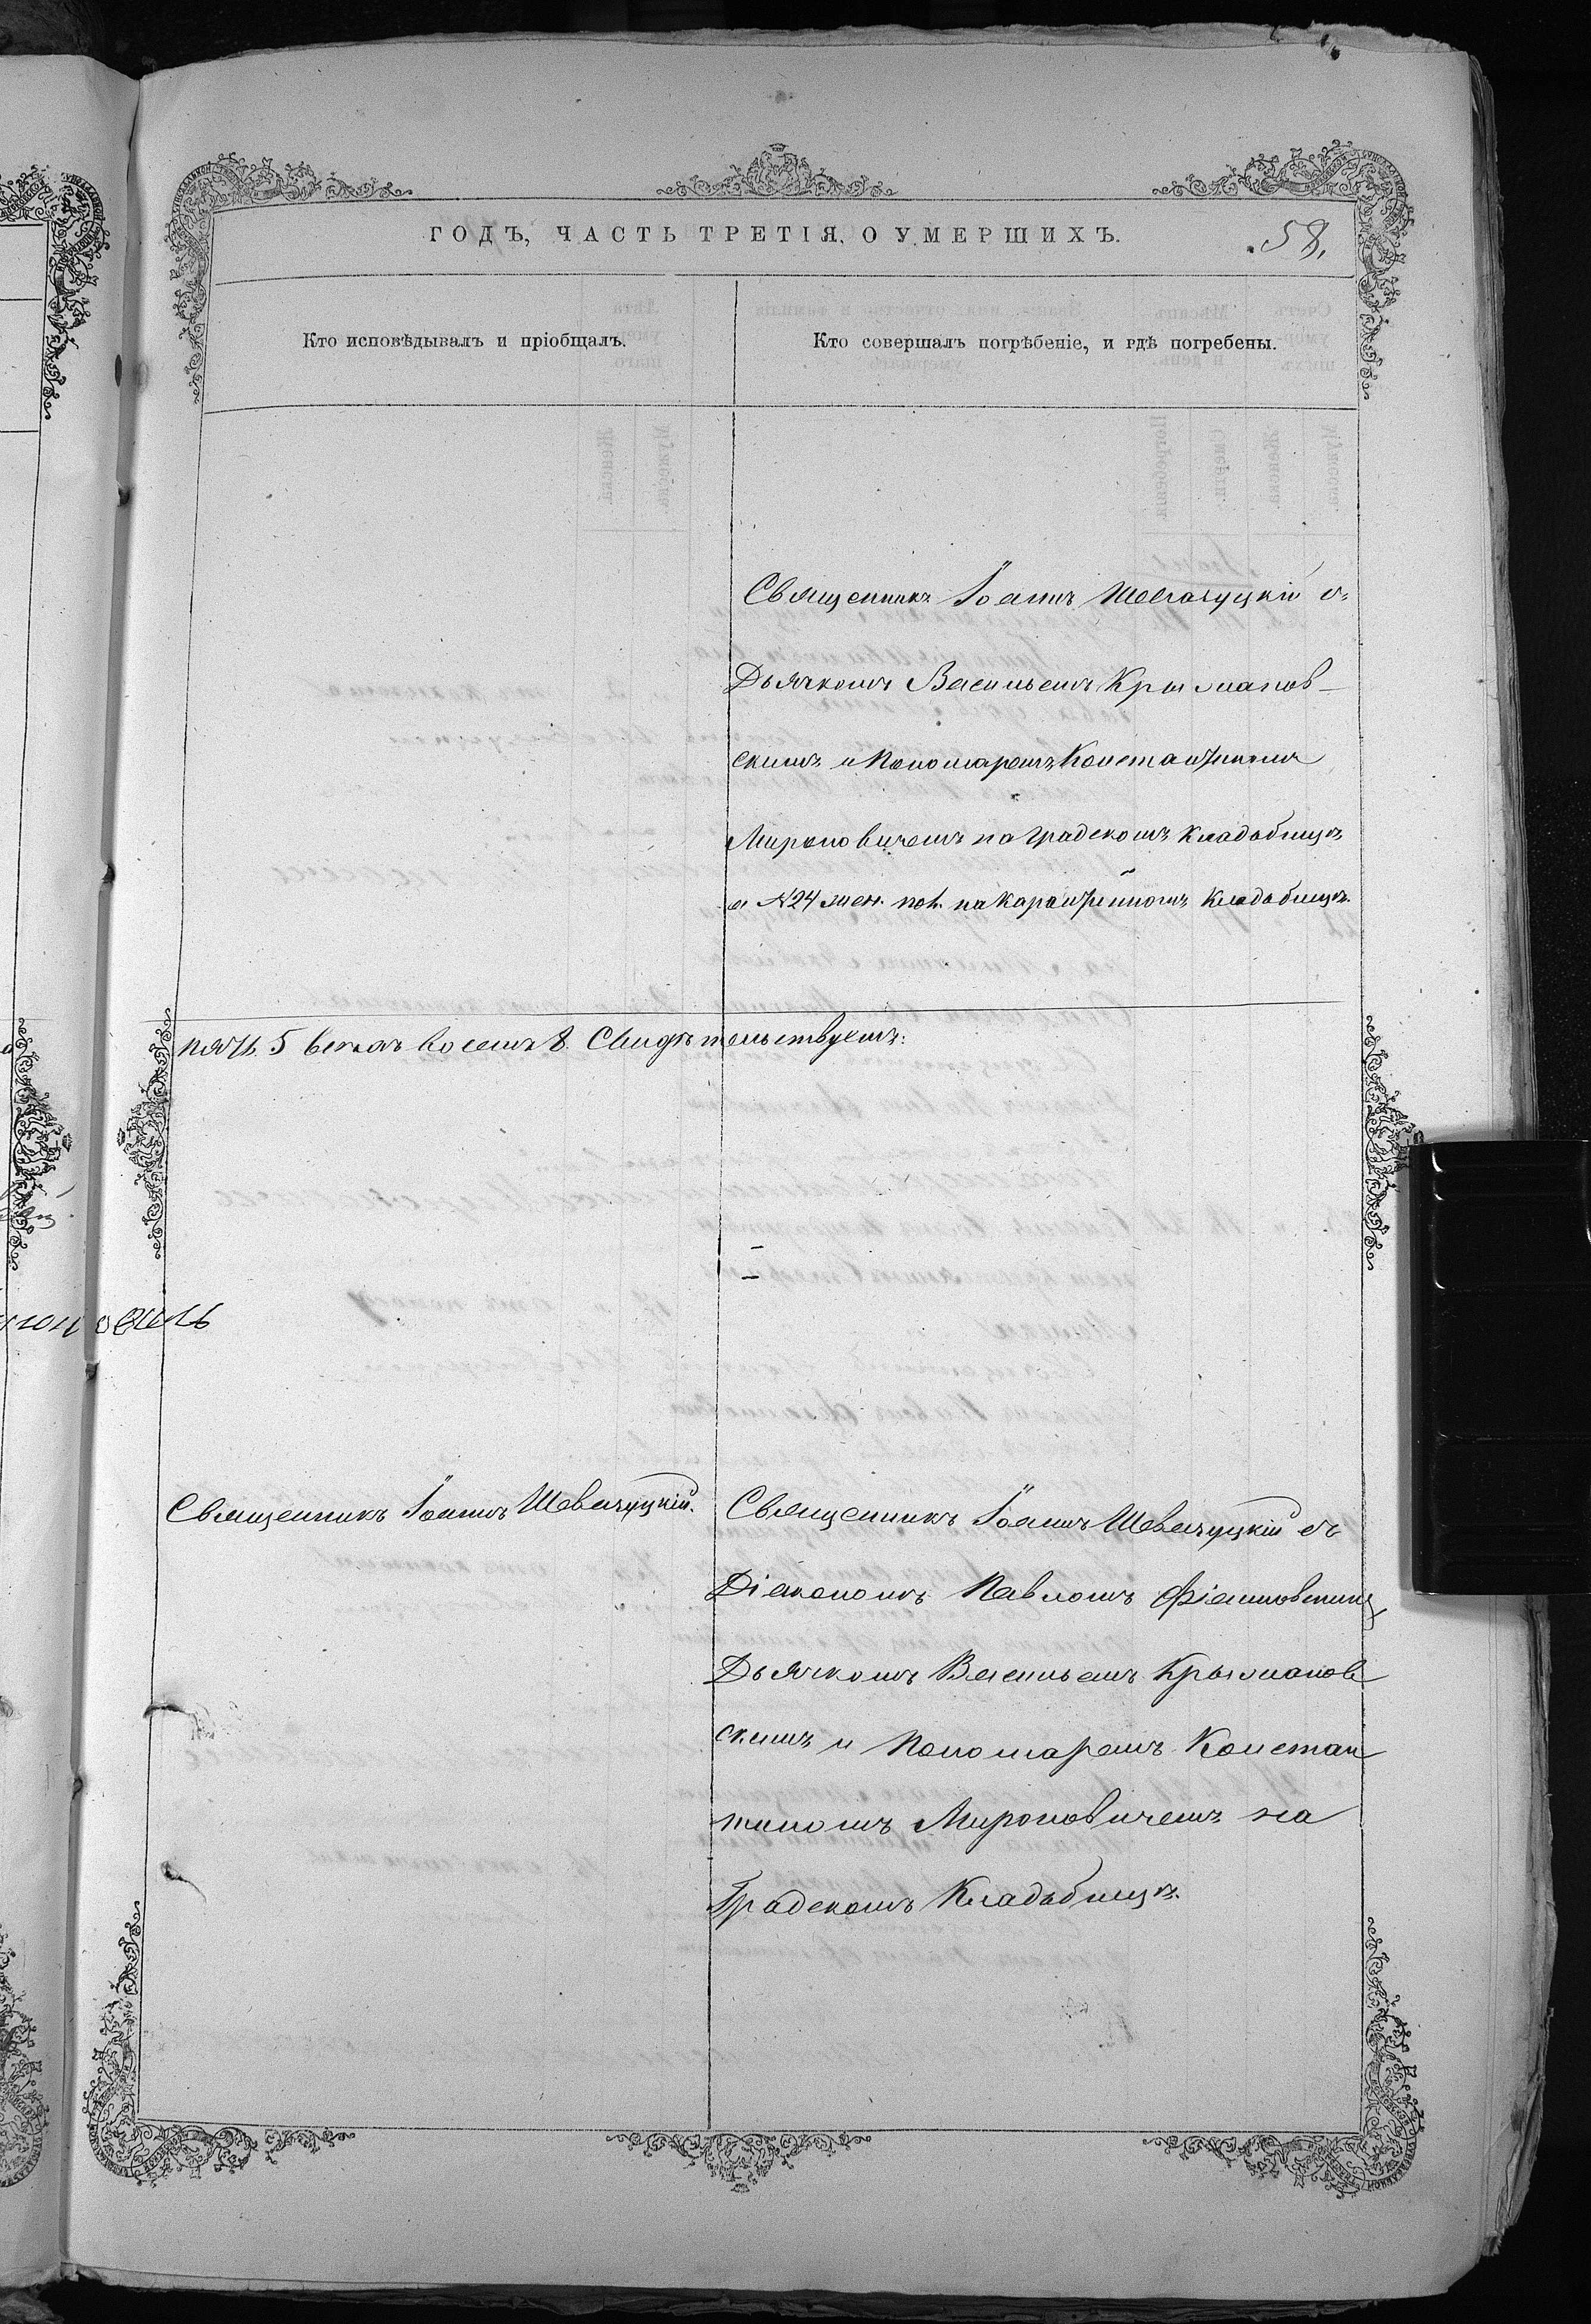 ГОДЪ, ЧАСТЬ ТРЕТІЯ, О УМЕРШИХЪ.
58.
Кто исповѣдывалъ и пріобщалъ.
Кто совершалъ погребеніе, и гдѣ погребены.
Священникъ Іоаннъ Шевалуцкій с
Дьячкомъ Василіемъ Крыжанов-
скимъ и Пономаремъ Константиномъ
Мироновичемъ на Градскомъ Кладбищѣ
а №24 жен. пол. на Карантинномъ Кладбищѣ.
пять 5 всѣхъ восемь 8. Свидѣтельствуемъ:
Священникъ Іоаннъ Шевалуцкій.
Священникъ Іоаннъ Шевалуцкій съ
Діакономъ Павломъ
Дьячкомъ Василіемъ Крыжанов
скимъ и Пономаремъ Констан
тиномъ Мироновичемъ на
Градскомъ Кладбищѣ.